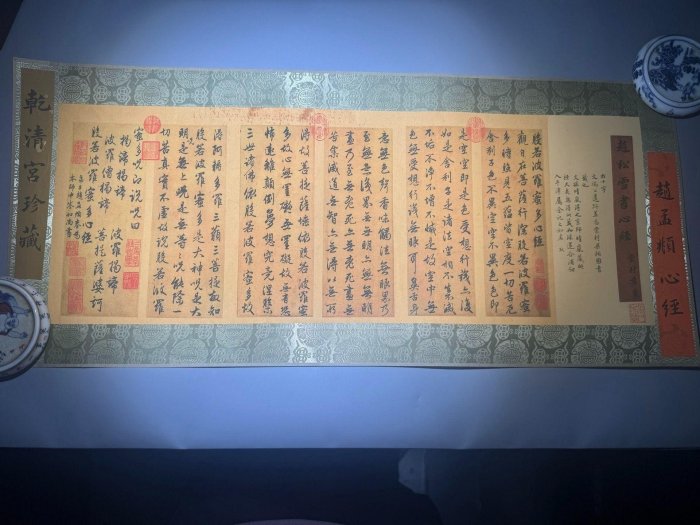 趙孟頫心經
趙松雪書心經
般若波羅蜜多心經
觀自在菩薩行深般若波羅蜜
多時照見五蘊皆空度一切苦厄
舍利子色不異空空不異色色即
是空空即是色受想行識亦復
如是舍利子是諸法空相不生不滅
不垢不淨不增不減是故空中無
色無受想行識無眼耳鼻舌身
意無色聲香味觸法無眼界乃
至無意識界無無明亦無無明
盡乃至無老死亦無老死盡無
苦集滅道無智亦無得以無所
得故菩提薩埵依般若波羅蜜
多故心無罣礙無罣礙故無有恐
怖遠離顛倒夢想究竟涅槃
三世諸佛依般若波羅蜜多故
得阿耨多羅三藐三菩提故知
般若波羅蜜多是大神咒是大
明咒是無上咒是無等等咒能除一
切苦真實不虛故說般若波羅
蜜多咒即說咒曰
揭諦揭諦 波羅揭諦
波羅僧揭諦 菩提薩婆訶
般若波羅蜜多心經
弟子趙孟頫奉為
本師中峯和尚書
乾清宮珍藏